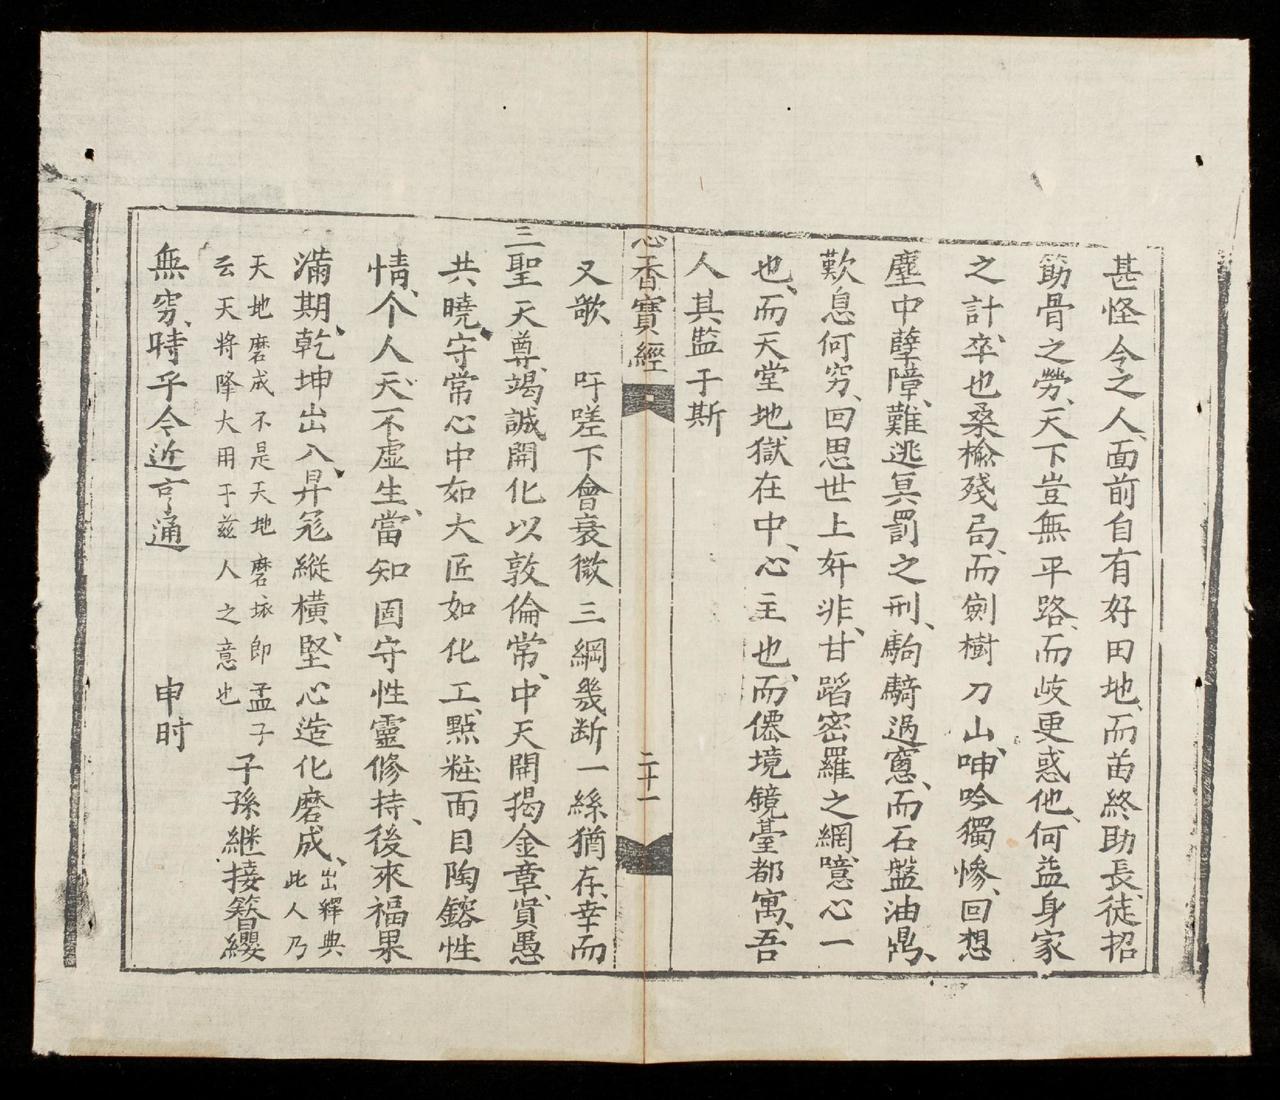 甚怪今之人、面前自有好田地、而苗終助長、徒招
筋骨之勞、天下豈無平路、而岐更惑他、何益身家
之計、卒也桑榆殘局、而劍樹刀山、呻吟獨慘、回想
塵中孽障、難逃冥罰之刑、駒騎過窻、而石盤油鼎、
歎息何窮、回思世上奸非、甘蹈密羅之網、噫心一
也、而天堂地獄在中、心主也、而僊境鏡臺都寓、吾
人其監于斯
心香寶經
二十一
又歌　吁嗟下會衰微三綱幾断一絲猶存、幸而
三聖天尊、竭誠開化以敦倫常、中天開揭金章、賢愚
共曉、守常心中如大匠如化工、點粧面目陶鎔性
情、个人天不虛生、當知固守性靈修持、後來福果
滿期、乾坤出入昇冠縱橫、堅心造化磨成、出釋典
此人乃
天地磨成不是天地磨琢即孟子
云天將降大用于茲人之意也
子孫継接簪纓
無窮、時乎今近亨通　申时